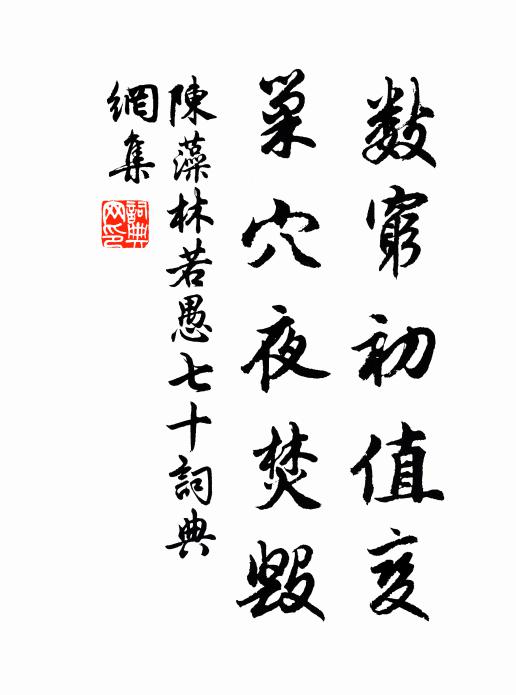 数窮初值変
巢穴夜焚毀
陳藻林若愚七十詞典
網集
詞典網印